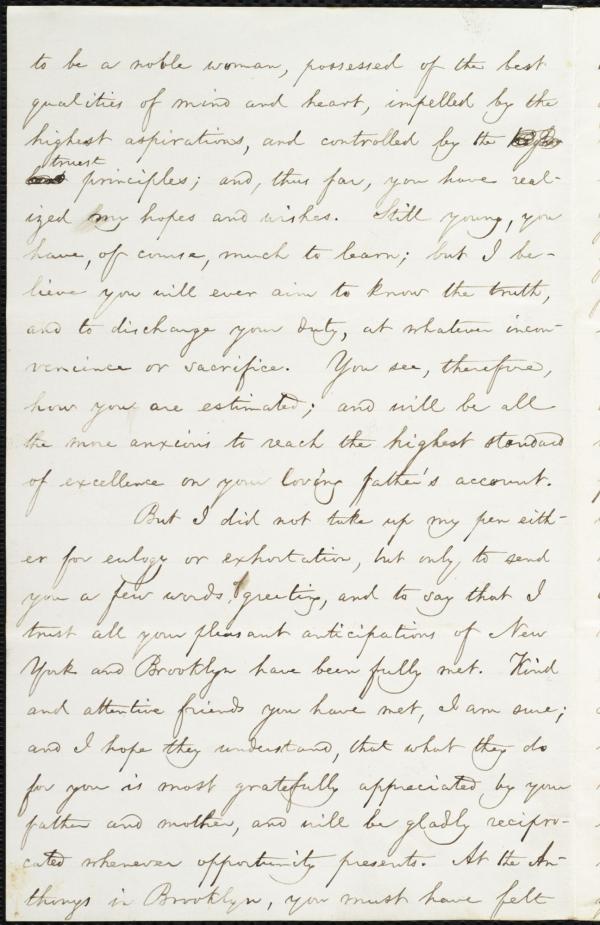 to be a noble woman, possessed of the best
qualities of mind and heart, impelled by the
highest aspirations, and controlled by the
truest
principles; and, thus far, you have real-
ized my hopes and wishes. Still young, you
have, of course, much to learn; but I be-
lieve you will ever aim to know the truth,
and to discharge your duty, at whatever incon-
venience or sacrifice. You see, therefore,
how you are estimated; and will be all
the more anxious to reach the highest standard
of excellence on your loving father's account.
But I did not take up my pen eith-
er for eulogy or exhortation, but only to send
you a few words of greeting, and to say that I
trust all your pleasant anticipations of New
York and Brooklyn have been fully met. Kind
and attentive friends you have met, I am sure;
and I hope they understand, that what they do
for you is most gratefully appreciated by your
father and mother, and will be gladly recipro-
cated whenever opportunity presents. At the An-
thonys in Brooklyn, you must have felt